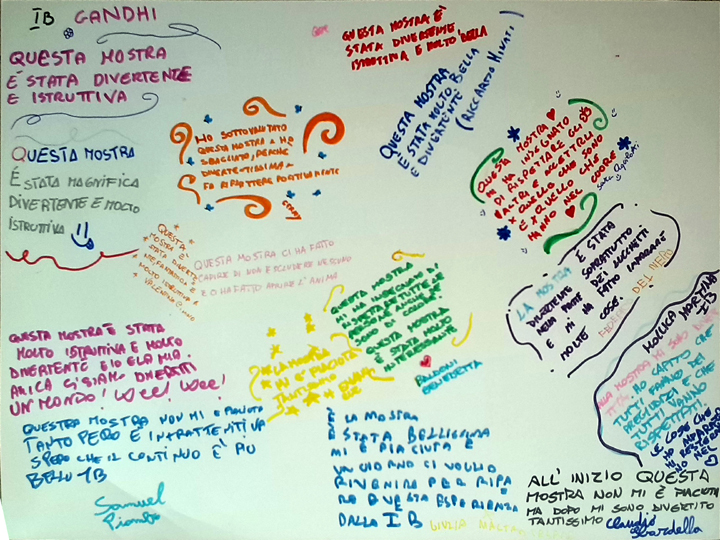 IB GANDHI
QUESTA MOSTRA
È STATA DIVERTENTE
E ISTRUTTIVA
QUESTA MOSTRA È
STATA DIVERTENTE,
ISTRUTTIVA E MOLTO BELLA
QUESTA MOSTRA
È STATA MOLTO BELLA
E DIVERTENTE
(RICCARDO MINATI)
HO SOTTOVALUTATO
QUESTA MOSTRA E HO
SBAGLIATO, PERCHÉ
DIVERTENTISSIMA E
FA RIFLETTERE POSITIVAMENTE
QUESTA MOSTRA
MI HA INSEGNATO
DI RISPETTARE GLI
ALTRI E ACCETTARLI
X QUELLO CHE SONO
E X QUELLO CHE
HANNO NEL CUORE
QUESTA MOSTRA
È STATA MAGNIFICA
DIVERTENTE E MOLTO
ISTRUTTIVA
QUESTA
MOSTRA È
STATA DIVERTENTE
MOLTO ISTRUTTIVA
QUESTA MOSTRA CI HA FATTO
CAPIRE DI NON ESCLUDERE NESSUNO
E CI HA FATTO APRIRE L'ANIMA
QUESTA MOSTRA
MI HA INSEGNATO DI
RISPETTARE TUTTE LE
PERSONE ANCHE
DI COLORE.
QUESTA MOSTRA
È STATA MOLTO
INTERESSANTE
BALDONI
BENEDETTA
LA MOSTRA
MI È PIACIUTA
TANTISSIMO
LA MOSTRA È STATA
DIVERTENTE SOPRATTUTTO
NELLA PARTE DEI LUCCHETTI
E MI HA FATTO IMPARARE
MOLTE COSE.
DEL NERO
QUESTA MOSTRA È STATA
MOLTO ISTRUTTIVA E MOLTO
DIVERTENTE E IO E LA MIA
AMICA CI SIAMO DIVERTITI
UN MONDO! WEEI WEE!
MOLLICA MARTINA
IB
ALLA MOSTRA MI SONO
HO CAPITO CHE
TUTTI FANNO DEI
PREGIUDIZI E CHE
TUTTI VANNO
RISPETTATI.
LE COSE CHE
HO IMPARATO
MI RESTERANNO
NEL
QUESTRA MOSTRA NON MI È PIACIUTA
TANTO PERO È INTRATTENITIVA
SPERO CHE IL CONTINUO È PIÙ
BELLO 1B
Samuel
Piombo
È LA MOSTRA
È STATA BELLISSIMA
MI È PIACIUTA E
UN GIORNO CI VOGLIO
RIVENIRE PER RIPE
RE QUESTA ESPERIENZA
DALLA IB
GIULIA
ALL'INIZIO QUESTA
MOSTRA NON MI È PIACIUTA
MA DOPO MI SONO DIVERTITO
TANTISSIMO Claudio
Scardella